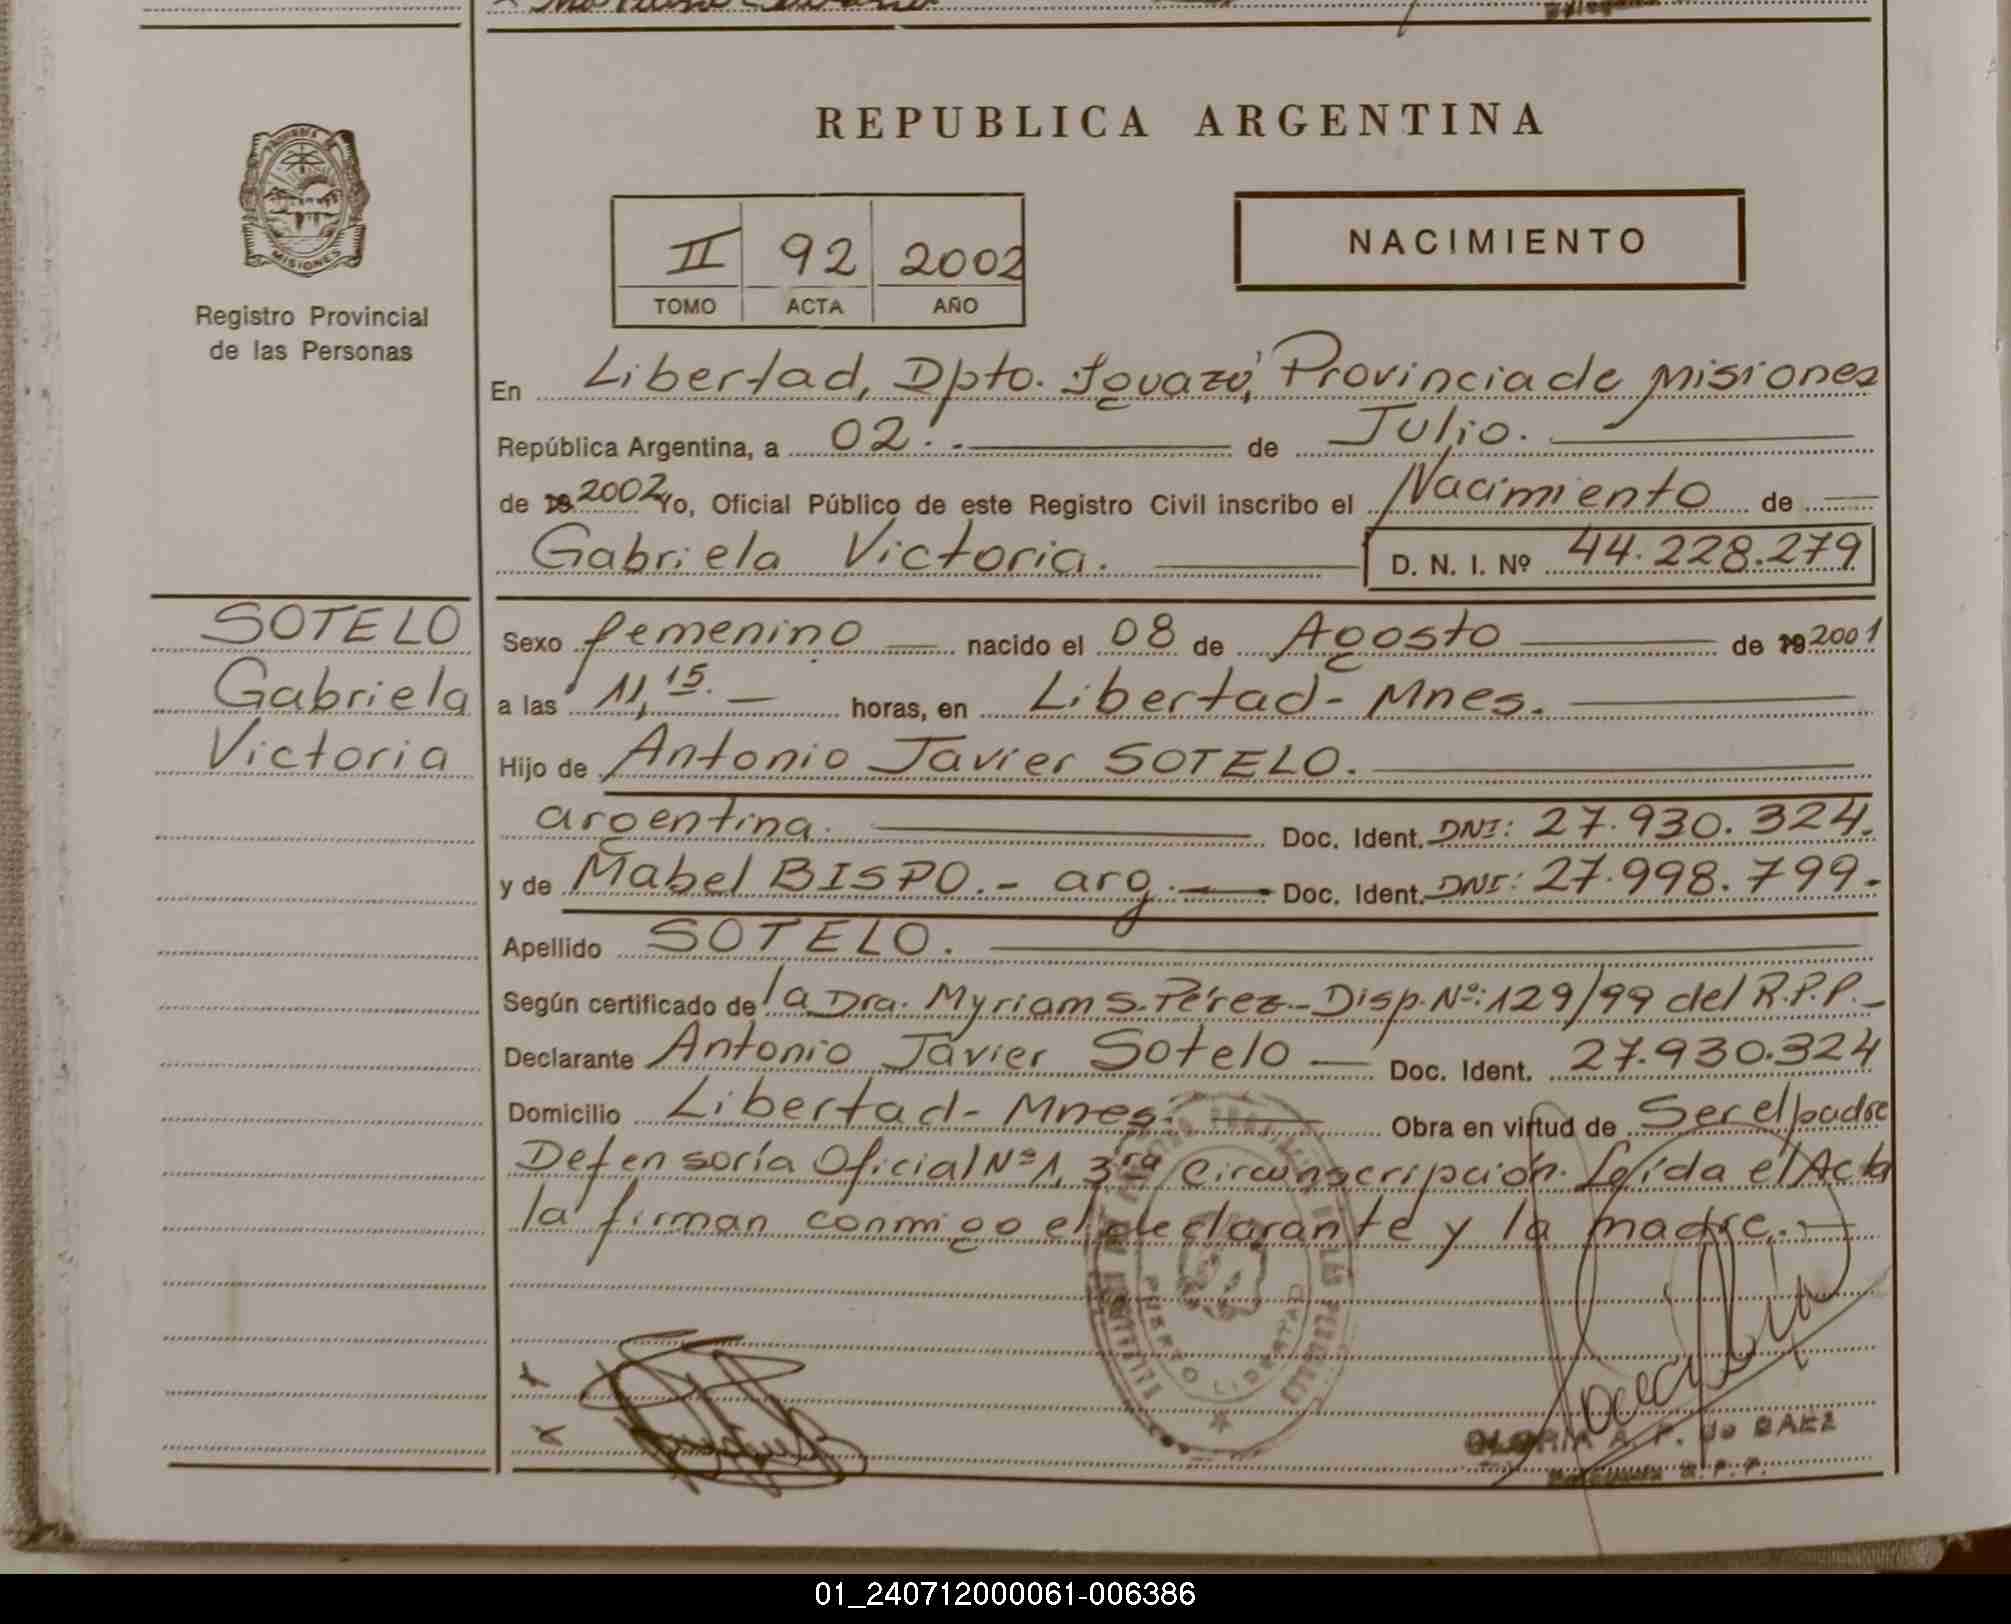 REPUBLICA ARGENTINA
PROVINCIA DE
MISIONES
Registro Provincial
de las Personas
II 92 2002
TOMO ACTA AÑO
NACIMIENTO
En Libertad, Dpto. Iguazú, Provincia de Misiones
República Argentina, a 02.- de Julio.
de 19 2002 Yo, Oficial Público de este Registro Civil inscribo el Nacimiento de
Gabriela Victoria. D. N. I. Nº 44.228.279
SOTELO
Gabriela
Victoria
Sexo femenino nacido el 08 de Agosto de 19 2001
a las 11,15.- horas, en Libertad - Mnes.
Hijo de Antonio Javier SOTELO.
argentina. Doc. Ident. DNI: 27.930.324.
y de Mabel BISPO.- arg. Doc. Ident. DNI: 27.998.799.-
Apellido SOTELO.
Según certificado de la Dra. Myriam S. Pérez - Disp. Nº: 129/99 del R.P.P.-
Declarante Antonio Javier Sotelo Doc. Ident. 27.930.324
Domicilio Libertad - Mnes. Obra en virtud de Ser el padre
Defensoría Oficial Nº 1, 3ra Circunscripción. Leída el Acta
la firman conmigo el declarante y la madre.-
PUERTO LIBERTAD
GLORIA A. F. de BAEZ
R. P. P.
01_240712000061-006386